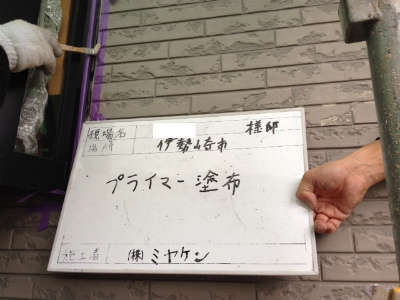 現場名 様邸
場所 伊勢崎市
プライマー塗布
施工者 ㈱ミヤケン